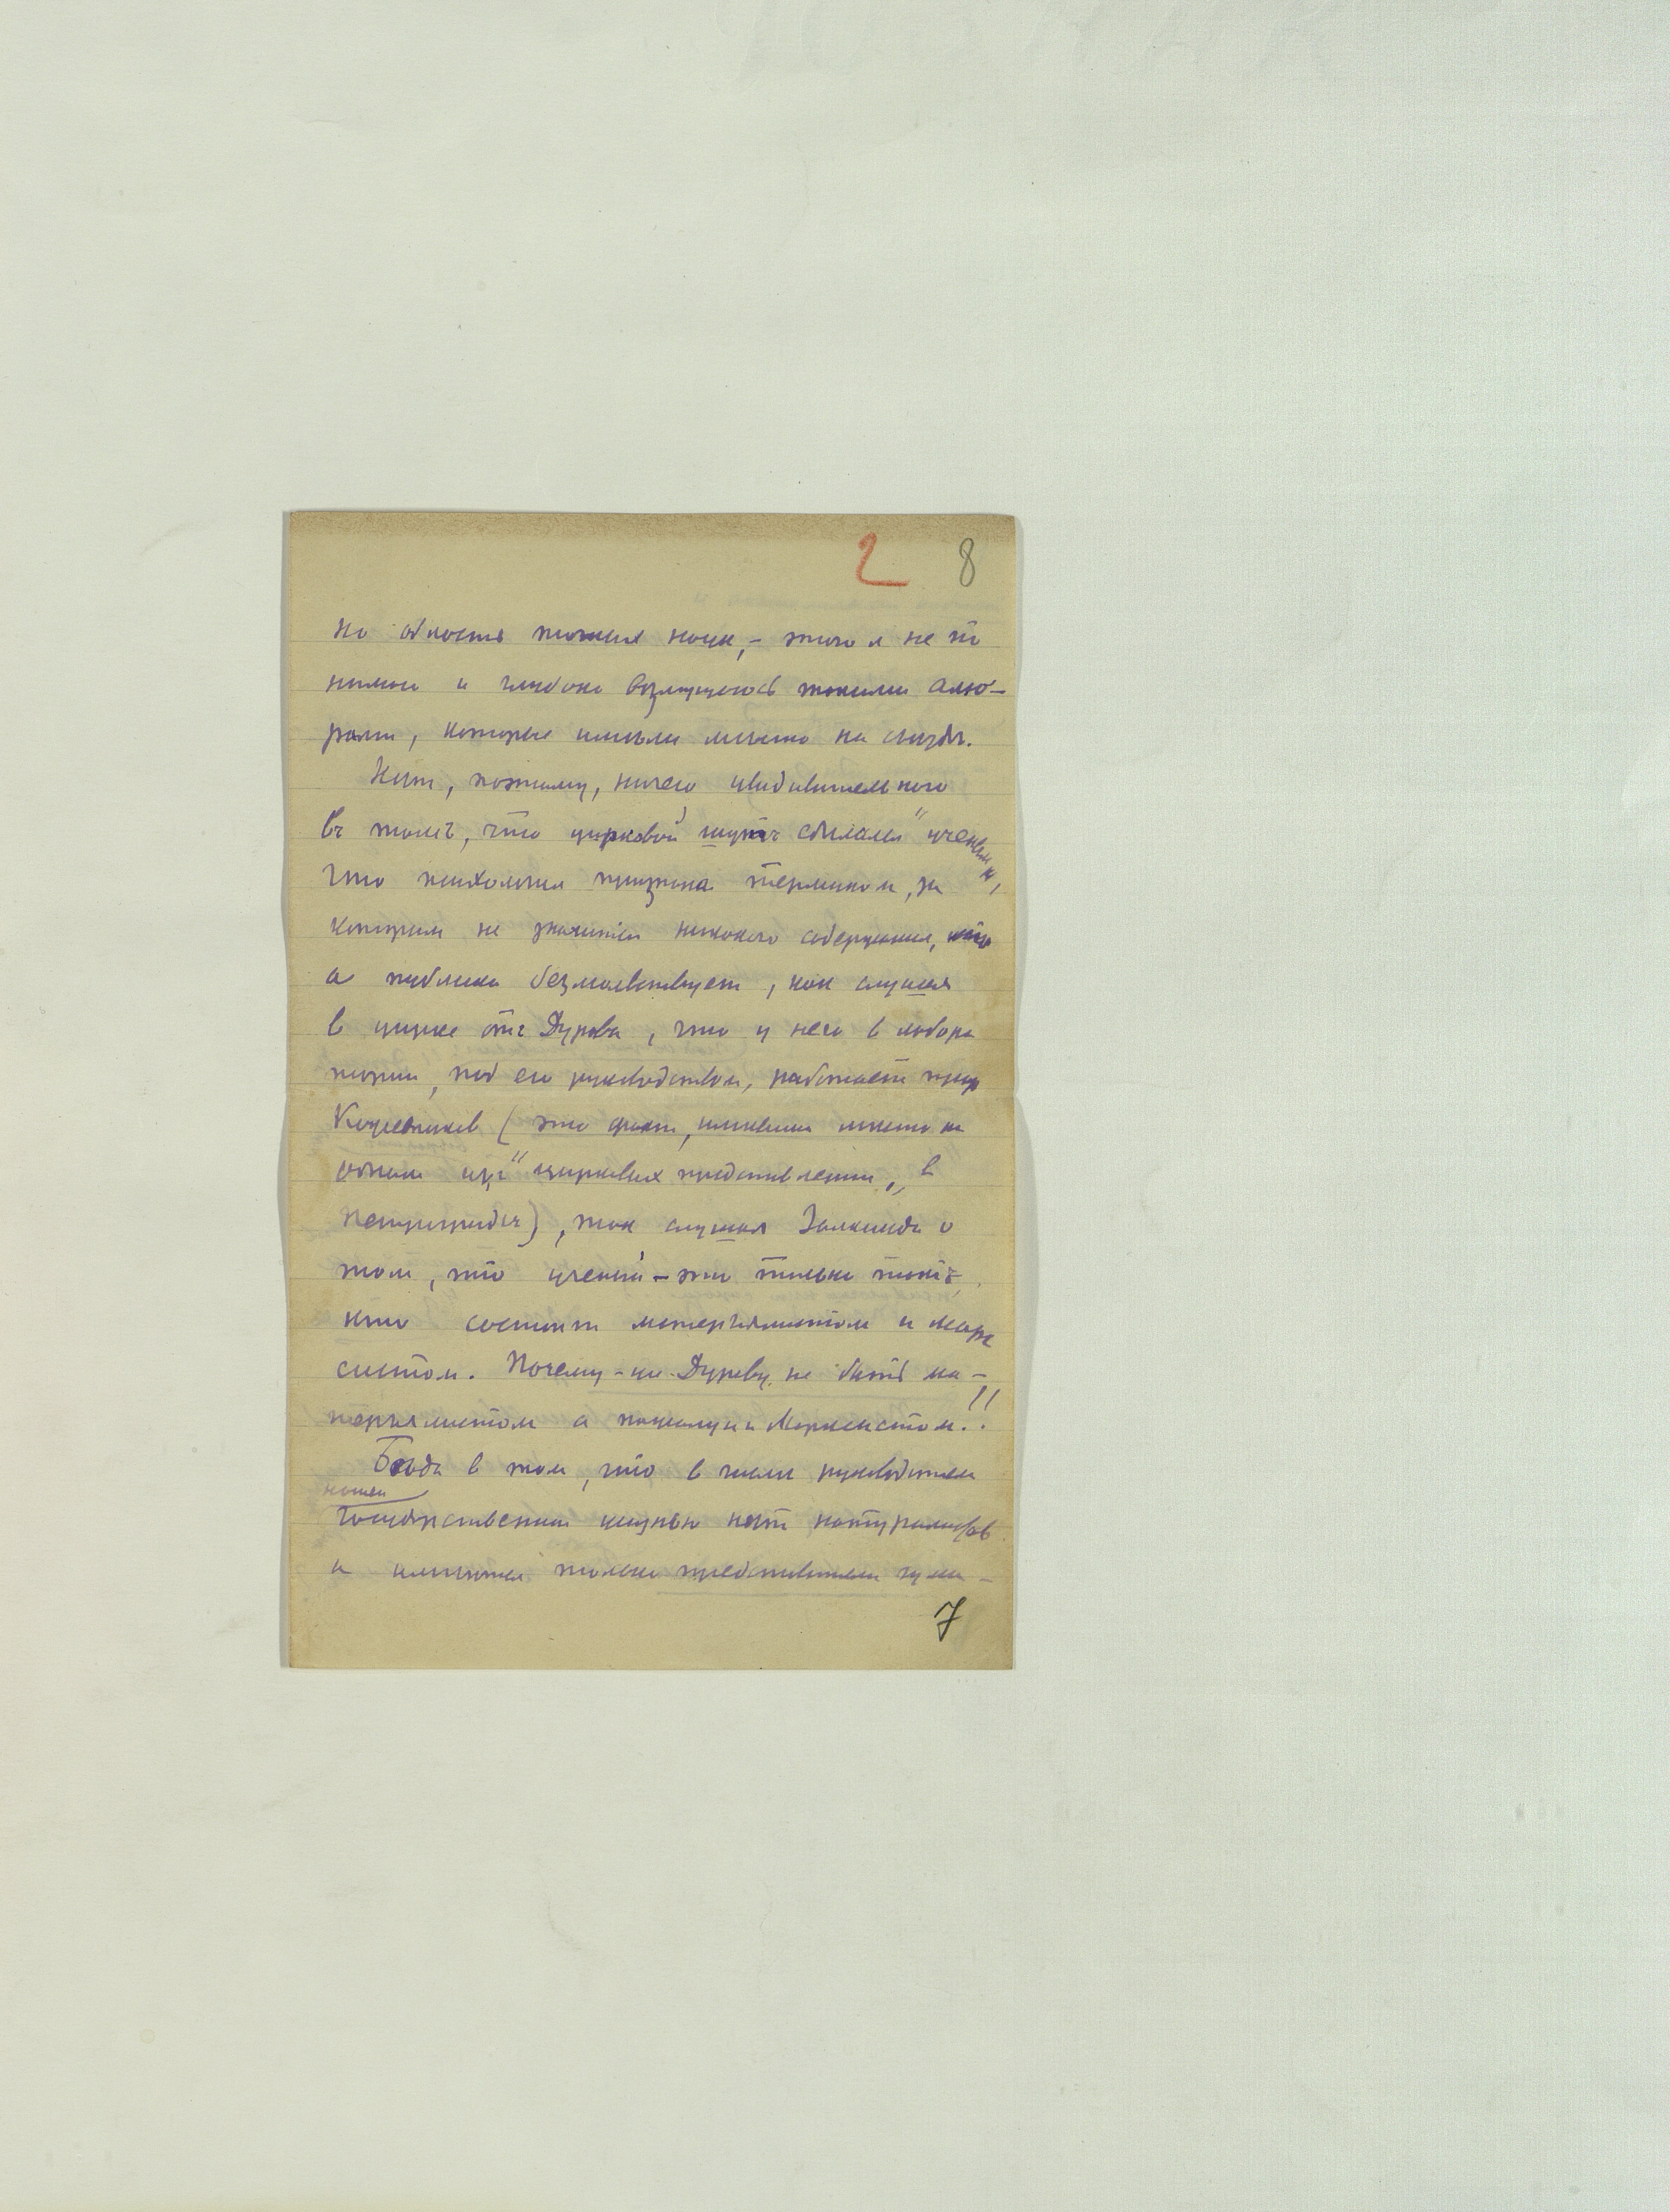 2 8
на область точных наук, – этого я не по
нимаю и глубоко возмущаюсь такими аллю-
рами, которые имели место на съезде.
Нет, поэтому, ничего удивительного
въ томъ, что цирковой шутъ сделался "ученым",
что психология признана термином, за
которым не значится никакого содержания,
а публика безмолвствует, как слушая
в цирке отъ Дурова, что у него в лабора
тории, под его руководством, работает проф
Кожевников (это факт, имевший место на
одном изъ "цирковых представлений" в
Петрограде), так слушая Залкинда о
том, что ученый – это только тотъ,
кто состоит матерьялистом и марк
систом. Почему-же Дурову не быть ма-
терьялистом а пожалуй и Марксистом!!
Беда в том, что в числе руководителей
нашей
Государственной жизнью нет натуралистов
а имеются только представители гума-
7